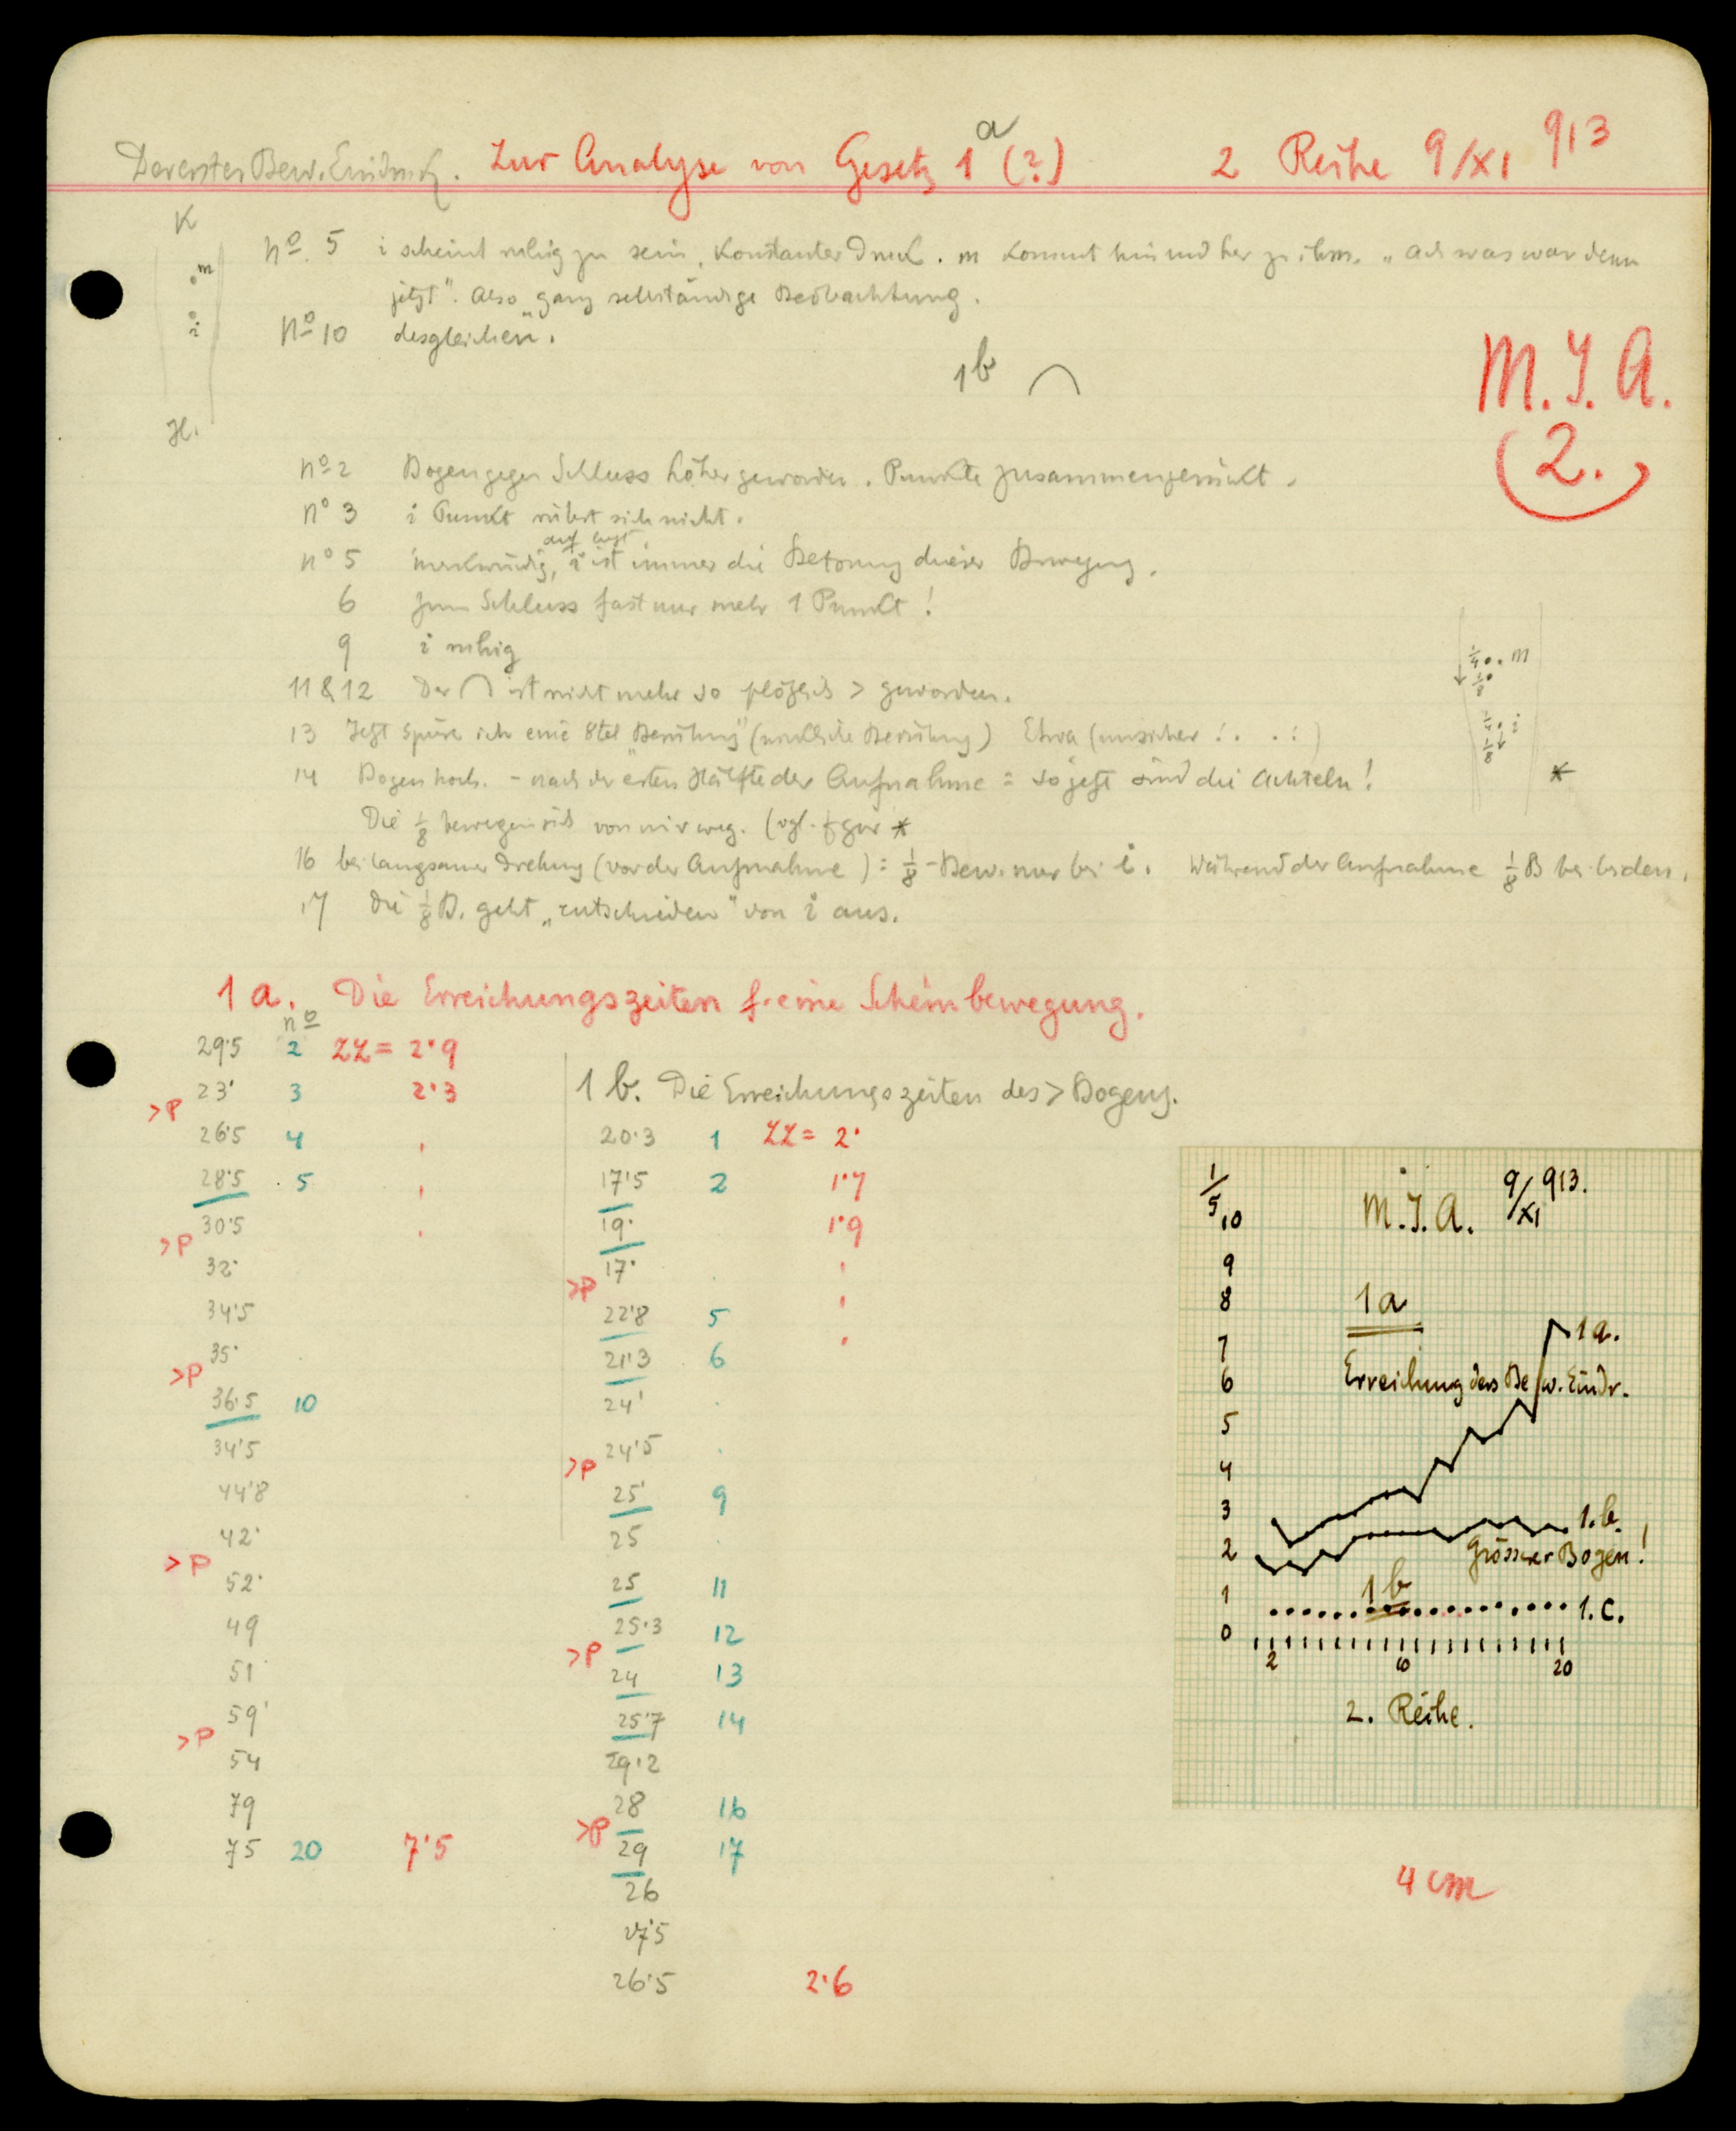 Der erster Bew. Eindruck. Zur Analyse von Gesetz 1a (?) 2 Reihe 9/XI 913
K
m
i
H.
No. 5 i scheint ruhig zu sein, Konstanter Druck. m kommt hin und her zu ihm. „Ach was war denn
jetzt". Also „ganz selbständige Beobachtung.
No 10 desgleichen".
1b ⌒
M.I.A.
(2.)
No 2 Bogen gegen Schluss höher geworden. Punkte zusammengerückt.
No 3 i Punkt rührt sich nicht.
auf
No 5 merkwürdig, i ist immer die Betonung dieser Bewegung.
6 zum Schluss fast nur mehr 1 Punkt!
9 i ruhig
11 & 12 Der ⌒ ist nicht mehr so plötzlich > geworden.
13 Jetzt spüre ich eine 8tel „Berührung" (wirkliche Berührung) Etwa (unsicher : . . : )
14 Bogen hoch. - nach der ersten Hälfte der Aufnahme = so jetzt sind die Achteln!
Die 1/8 bewegen sich von mir weg. (vgl. Figur *
16 bei langsamer Drehung (vor der Aufnahme) = 1/8 - Bew. nur bei i. Während der Aufnahme 1/8 B bei beiden.
17 die 1/8 B. geht „entschieden" von i aus.
1/4 m
1/8
1/4 i
1/8
*
1 a. Die Erreichungszeiten f. eine Scheinbewegung.
No
29·5 2 ZZ = 2·9
23· 3 2·3
>P
26·5 4
28·5 5
30·5
>P
32·
34·5
35·
>P
36·5 10
34·5
44·8
42·
>P
52·
49
51
59·
>P
54
79
75 20 7·5
1 b. Die Erreichungszeiten des > Bogens.
20·3 1 ZZ = 2·
17·5 2 1·7
19· 1·9
17·
>P
22·8 5
21·3 6
24·
24·5
>P
25· 9
25
25 11
25·3 12
>P
24 13
25·7 14
29·2
28 16
>P
29 17
26
27·5
26·5 2·6
1/5
M.I.A. 9/XI 913.
10
9
8
7
6
5
4
3
2
1
0
1a
1a.
Erreichung des Bew. Eindr.
1.b.
Grösserer Bogen!
1b
1.c.
2 10 20
2. Reihe.
4 cm